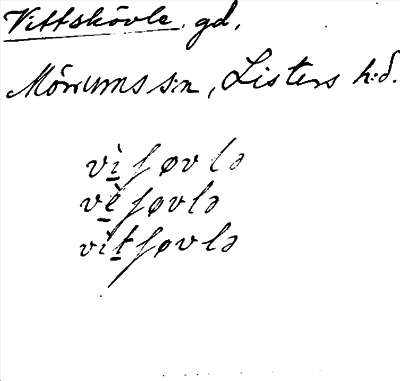 Vittskövle gd,
Mörrums s:n, Listers h:d.
vı̀ʃøvlə
vèʃøvlə
vìtʃøvlə